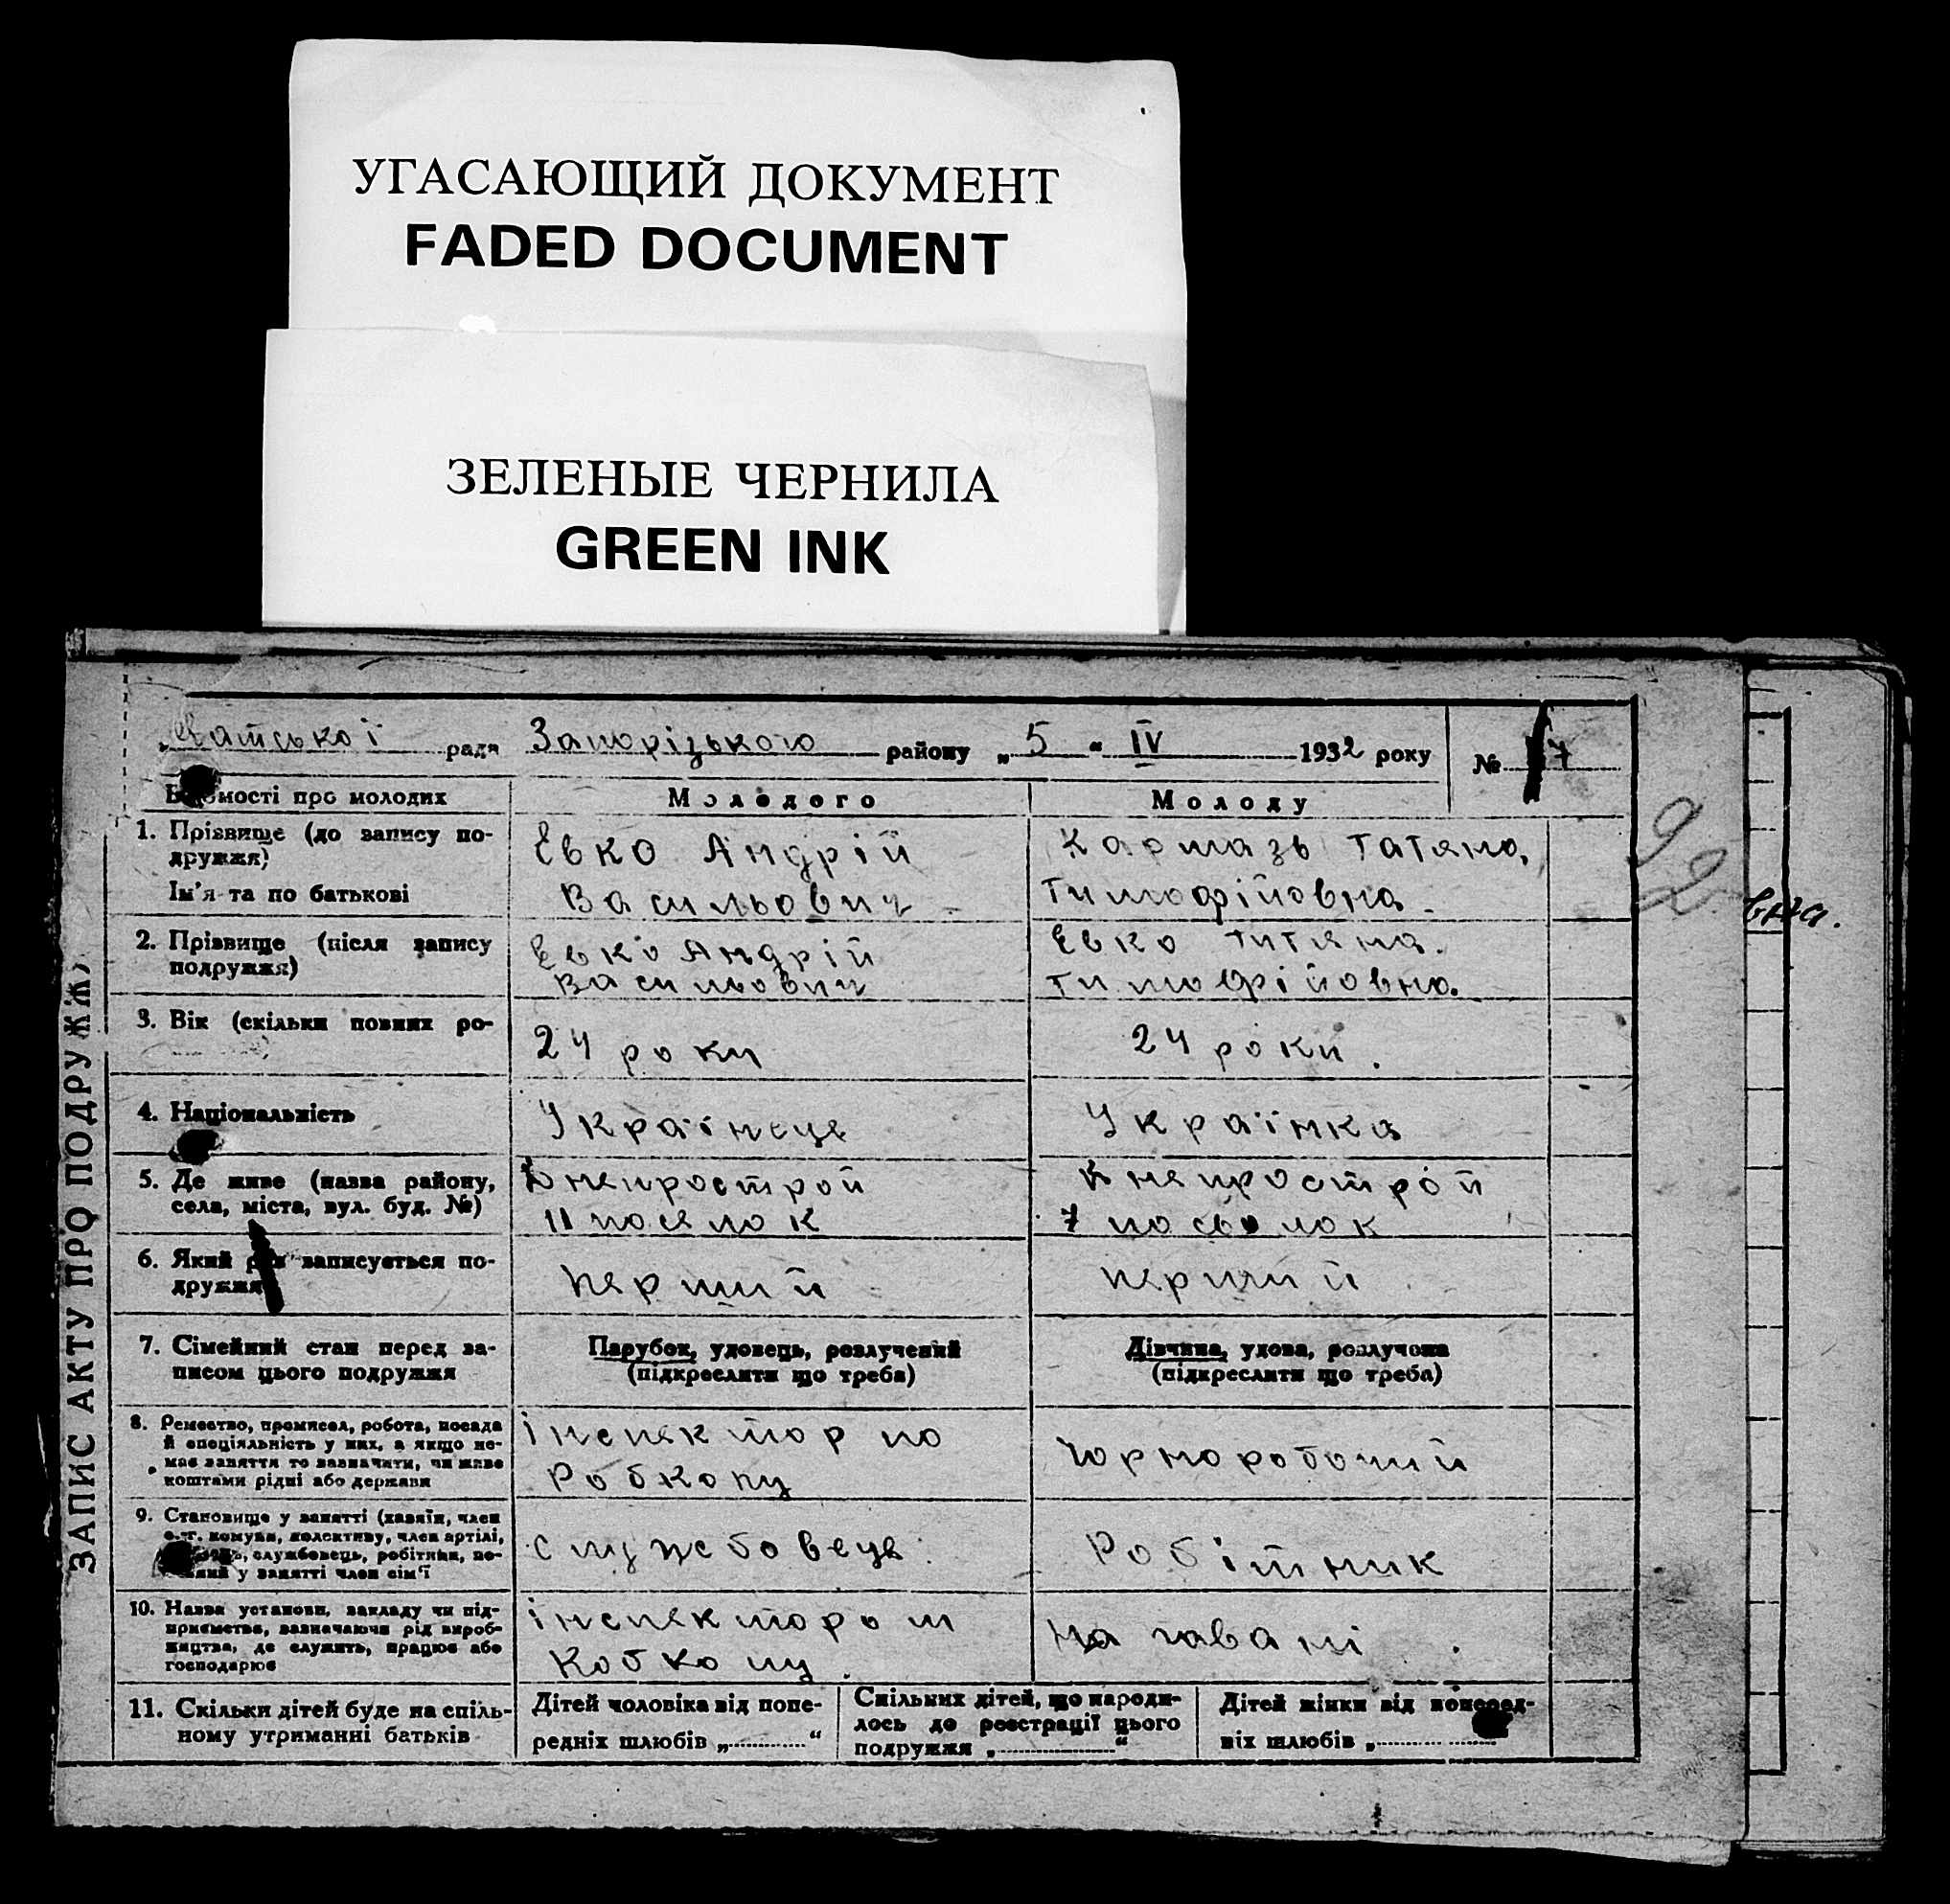 УГАСАЮЩИЙ ДОКУМЕНТ
FADED DOCUMENT
ЗЕЛЕНЫЕ ЧЕРНИЛА
GREEN INK
ЗАПИС АКТУ ПРО ПОДРУЖЖ
ради Запорізького району „5“ IV 1932 року № 7
92
вна.
про молодих Молодого Молоду
1. Прізвище (до запису подружжя)
Ім'я та по батькові
Евко Андрій
Васильович
Кармазь Татяна,
Тимофійовна.
2. Прізвище (після запису
подружжя)
Евко Андрій
Васильович
Евко Титяна.
Тимофійовна.
3. Вік (скільки повних ро-
24 роки
24 роки.
4. Національність
Українець
Українка
5. Де живе (назва району,
села, міста, вул. буд. №)
Днепрострой
11 посялок
Днепрострой
7 посьолок
6. Який раз записується по-
дружжя
Перший
перший
7. Сімейний стан перед за-
писом цього подружжя
Парубок, удовець, розлучений
(підкреслити що треба)
Дівчина, удова, розлучена
(підкреслити що треба)
8. Ремество, промисел, робота, посада
й спеціяльність у них, а якщо не-
має заняття то зазначити, чи живе
коштами рідні або держави
інспектор по
Робкопу
Чорноробочий
9. Становище у занятті (хазяїн, член
с.-г. комуни, колективу, член артілі,
службовець, робітник, по-
у занятті член сім'ї
службовець.
Робітник
10. Назва установи, закладу чи під-
приємства, зазначаючи рід вироб-
ництва, де служить, працює або
господарює
інспектором
Кобкопу.
на гавані.
11. Скільки дітей буде на спіль-
ному утриманні батьків
Дітей чоловіка від попе-
редніх шлюбів „ “
Спільних дітей, що народи-
лось до реєстрації цього
подружжя „ “
Дітей жінки від поперед-
ніх шлюбів „